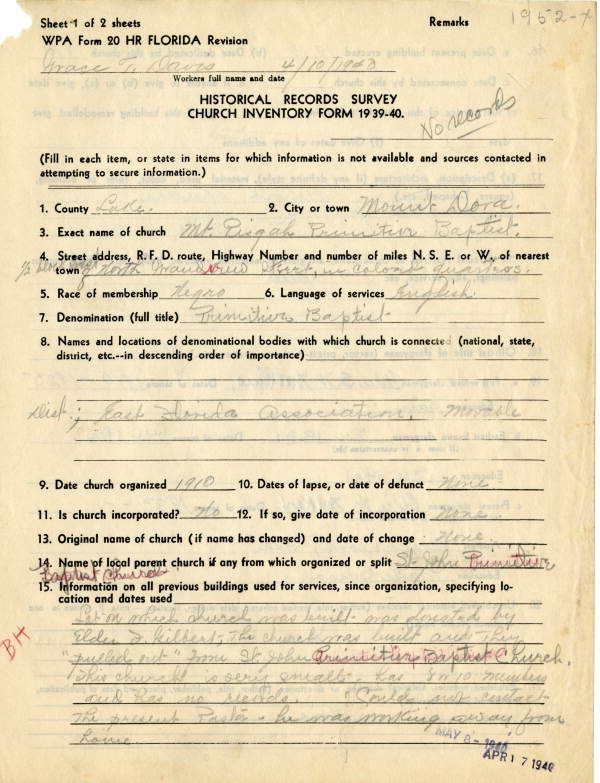 Sheet 1 of 2 sheets
Remarks
1952-x
WPA Form 20 HR FLORIDA Revision
Grace T. Davis 4/10/1940
Workers full name and date
HISTORICAL RECORDS SURVEY
CHURCH INVENTORY FORM 1939-40.
No records
(Fill in each item, or state in items for which information is not available and sources contacted in
attempting to secure information.)
1. County Lake. 2. City or town Mount Dora.
3. Exact name of church Mt. Pisgah Primitive Baptist.
4. Street address, R. F. D. route, Highway Number and number of miles N. S. E. or W. of nearest
town of North Grandview Street, in colored quarters.
5. Race of membership Negro 6. Language of services English.
7. Denomination (full title) Primitive Baptist
8. Names and locations of denominational bodies with which church is connected (national, state,
district, etc.--in descending order of importance)
Dist.; East Florida Association. Movable
9. Date church organized 1910 10. Dates of lapse, or date of defunct None.
11. Is church incorporated? No 12. If so, give date of incorporation None.
13. Original name of church (if name has changed) and date of change None.
14. Name of local parent church if any from which organized or split St. John Primitive
Baptist Church
15. Information on all previous buildings used for services, since organization, specifying lo-
cation and dates used
Lot on which church was built was donated by
Elder J. Gilbert, The church was built and They
BH
"pulled out" from St John Primitive Baptist Church.
This church is very small - has 8 or 10 members
and has no records. Could not contact
The present Pastor - he was working away from
home
MAY 8 - 1940
APR 17 1940